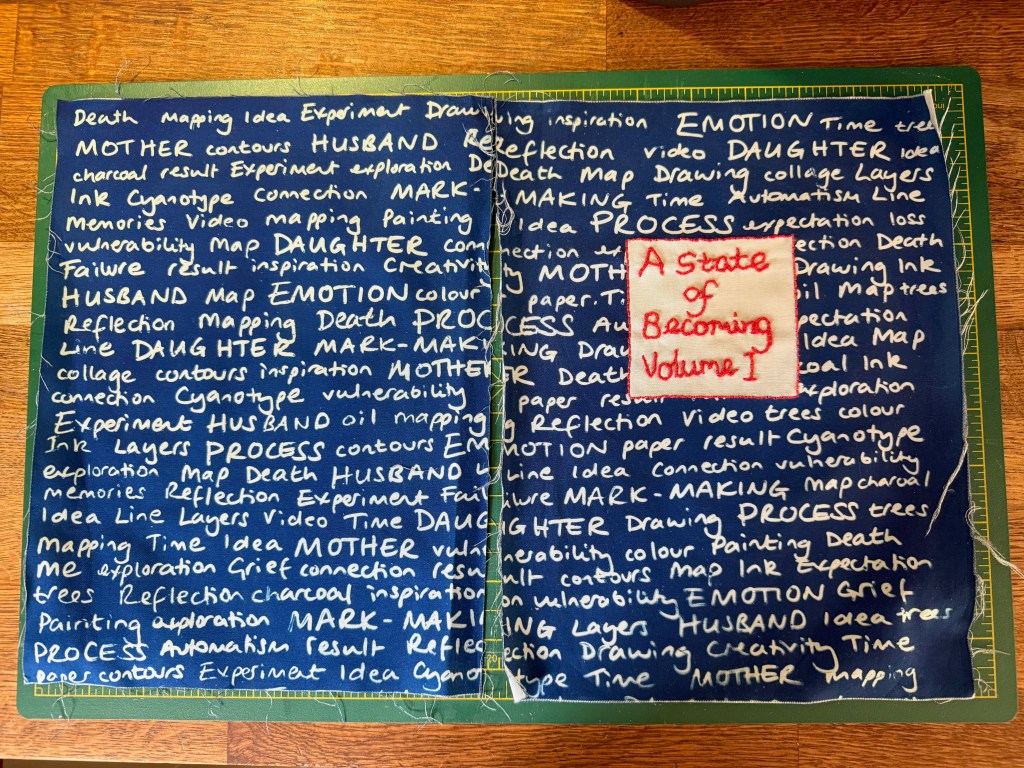 Death Mapping Idea Experiment Drawing inspiration EMOTION Time tree
MOTHER contours HUSBAND Reflection video DAUGHTER Idea
charcoal result Experiment exploration Death Map Drawing collage Layers
Ink Cyanotype Connection MARK-MAKING Time Automatism Line
Memories Video mapping Painting Idea PROCESS expectation loss
vulnerability Map DAUGHTER connection ex ection Death
Failure result inspiration Creativity MOTH Drawing Ink
HUSBAND Map EMOTION colour paper. Ti oil Map trees
Reflection Mapping Death PROCESS Au pectation
Line DAUGHTER MARK-MAKING Draw Idea Map
collage contours inspiration MOTHER Death coal Ink
connection Cyanotype vulnerability paper resu xploration
A State
of
Becoming
Volume I
Experiment HUSBAND oil mapping Reflection Video trees colour
Ink Layers PROCESS contours EMOTION paper result Cyanotype
exploration Map Death HUSBAND Line Idea connection vulnerability
memories Reflection Experiment Failure MARK-MAKING Map charcoal
Idea Line Layers Video Time DAUGHTER Drawing PROCESS trees
Mapping Time Idea MOTHER vulnerability colour Painting Death
Me exploration Grief connection result contours Map Ink Expectation
trees Reflection charcoal inspiration vulnerability EMOTION Grief
Painting exploration MARK-MAKING Layers HUSBAND Idea trees
PROCESS Automatism result Reflection Drawing Creativity Time
paper contours Experiment Idea Cyanotype Time MOTHER mapping